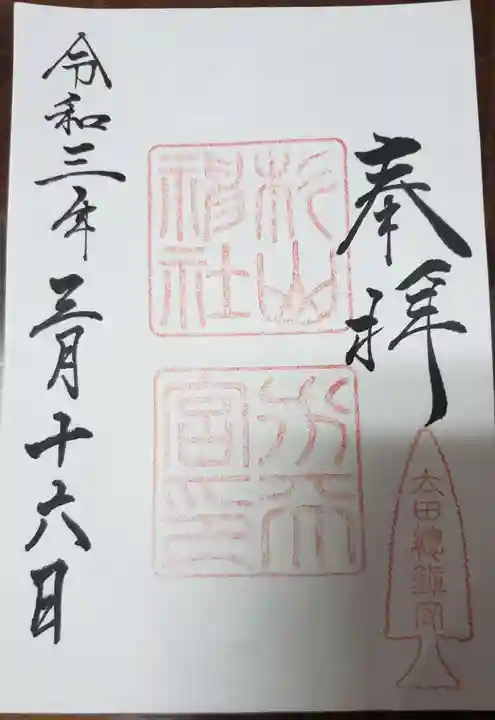 奉拝
杉山
神社
太田總鎮守
令和三年三月十六日